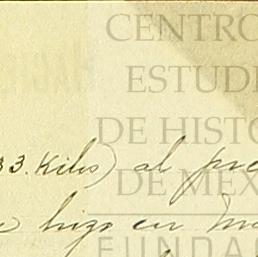 CENTRO
ESTUDI
DE HISTO
DE MÉX
FUNDAC
33. Kilos) al pre
hizo en